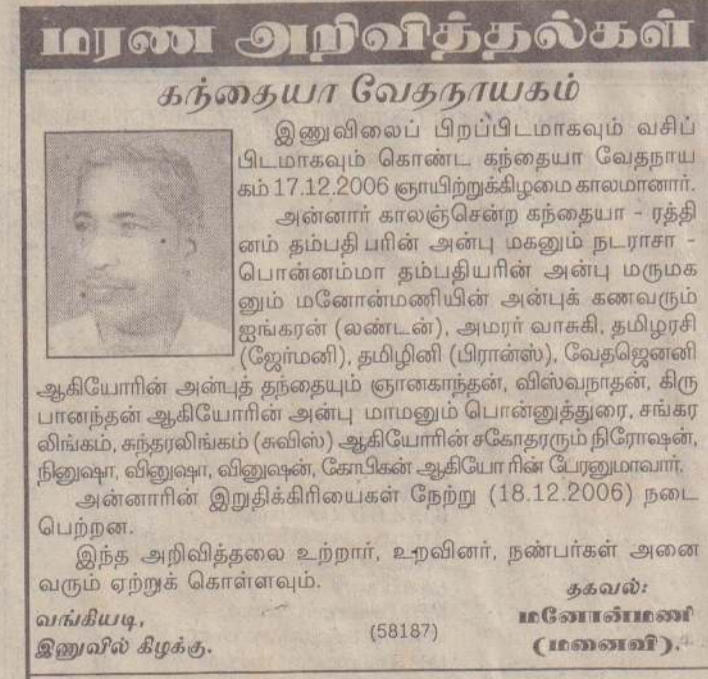 மரண அறிவித்தல்கள்
கந்தையா வேதநாயகம்
இணுவிலைப் பிறப்பிடமாகவும் வசிப்
பிடமாகவும் கொண்ட கந்தையா வேதநாய
கம் 17.12.2006 ஞாயிற்றுக்கிழமை காலமானார்.
அன்னார் காலஞ்சென்ற கந்தையா - ரத்தி
னம் தம்பதி பரின் அன்பு மகனும் நடராசா -
பொன்னம்மா தம்பதியரின் அன்பு மருமக
னும் மனோன்மணியின் அன்புக் கணவரும்
ஐங்கரன் (லண்டன்), அமரர் வாசுகி, தமிழரசி
(ஜேர்மனி), தமிழினி (பிரான்ஸ்), வேதஜெனனி
ஆகியோரின் அன்புத் தந்தையும் ஞானகாந்தன், விஸ்வநாதன், கிரு
பானந்தன் ஆகியோரின் அன்பு மாமனும் பொன்னுத்துரை, சங்கர
லிங்கம், சுந்தரலிங்கம் (சுவிஸ்) ஆகியோரின் சகோதரரும் நிரோஷன்,
நினுஷா, வினுஷா, வினுஷன், கோபிகன் ஆகியோ ரின் பேரனுமாவார்.
அன்னாரின் இறுதிக்கிரியைகள் நேற்று (18.12.2006) நடை
பெற்றன.
இந்த அறிவித்தலை உற்றார், உறவினர், நண்பர்கள் அனை
வரும் ஏற்றுக் கொள்ளவும்.
தகவல்:
வங்கியடி, மனோன்மணி
இணுவில் கிழக்கு. (58187) (மனைவி).